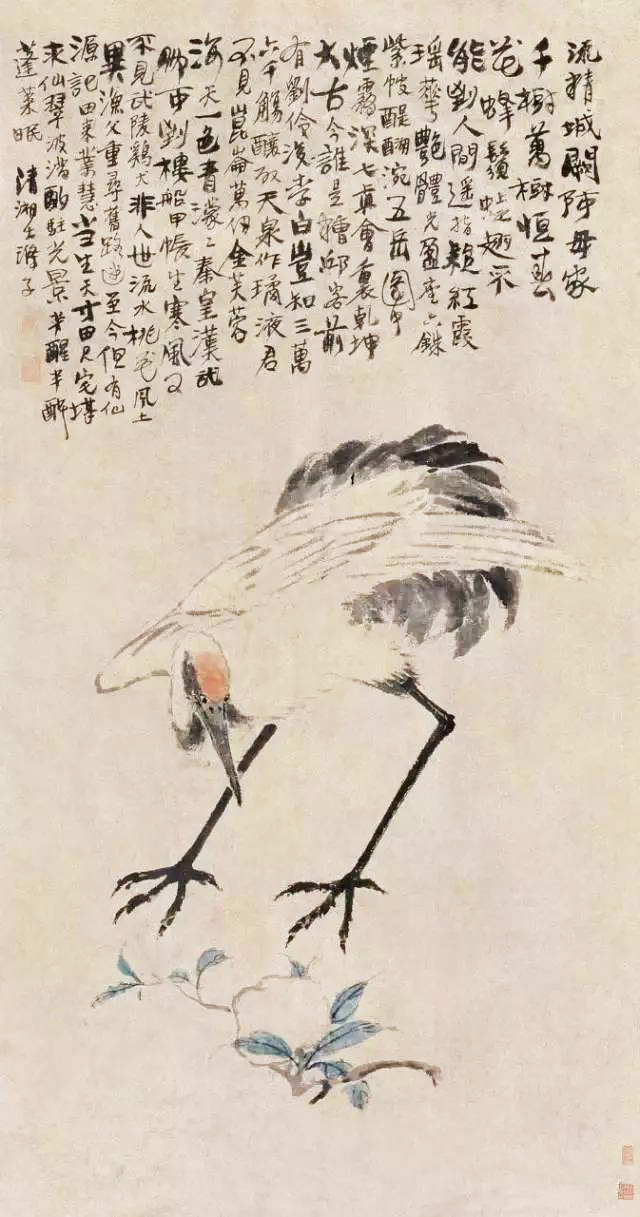 流精城闕阿母家
千樹萬樹恒春
花蜂鬚蝶翅不
能到人間遙指赬紅霞
瑤華艷體光盈座六銖
紫帔醍醐浣五岳圖中
煙霧深七真會裏乾坤
大古今誰是糟邱客前
有劉伶後李白豈知三萬
六千觴釀取天泉作璚液君
不見崑崙萬仞金芙蓉
海天一色青濛々秦皇漢武
到樓船甲帳生寒風又
不見武陵鷄犬非人世流水桃花風土
異漁父重尋舊路迷至今但有仙
源記田東業慧生天寸田尺宅堪
求仙翠波滿酌駐光景半醒半醉
蓬萊眠 清湘大滌子